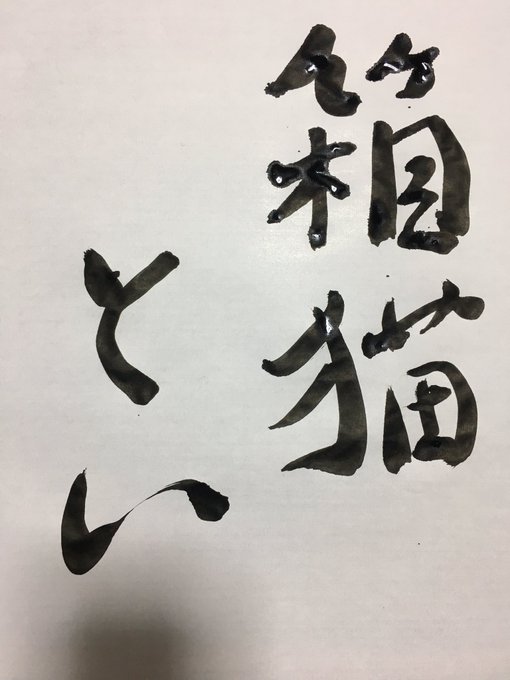 箱猫
とい